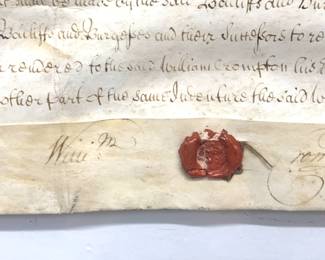 shall be made by the said Bailiffs and Bur
Bailiffs and Burgesses and their Successors to re
rendered to the said William Crompton his
other part of the same Indenture the said
Will.m
rom